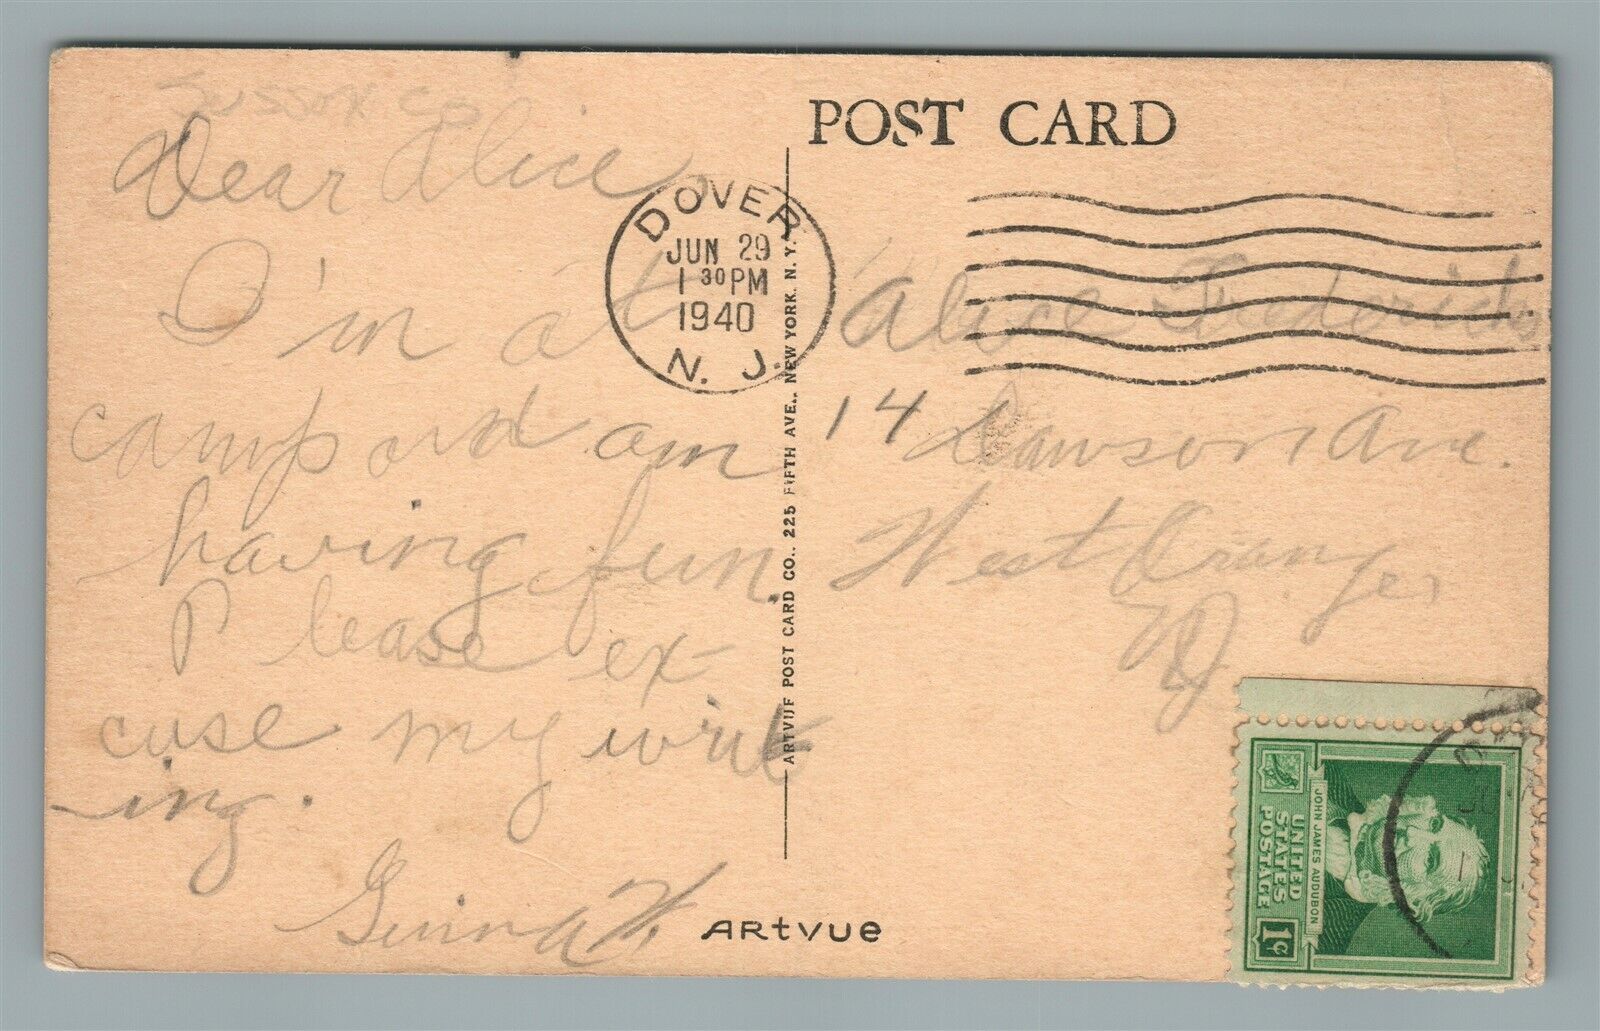 Sussex Co
Dear Alice,
I'm at
camp and am
having fun.
Please ex-
cuse my writ-
ing.
W.
POST CARD
DOVER
JUN 29
1 30 PM
1940
N. J.
ARTVUE POST CARD CO., 225 FIFTH AVE., NEW YORK, N. Y.
Alice Fredericks
14 Lawson Ave.
West Orange,
NJ
ARTVUE
JOHN JAMES AUDUBON
UNITED
STATES
POSTAGE
1¢